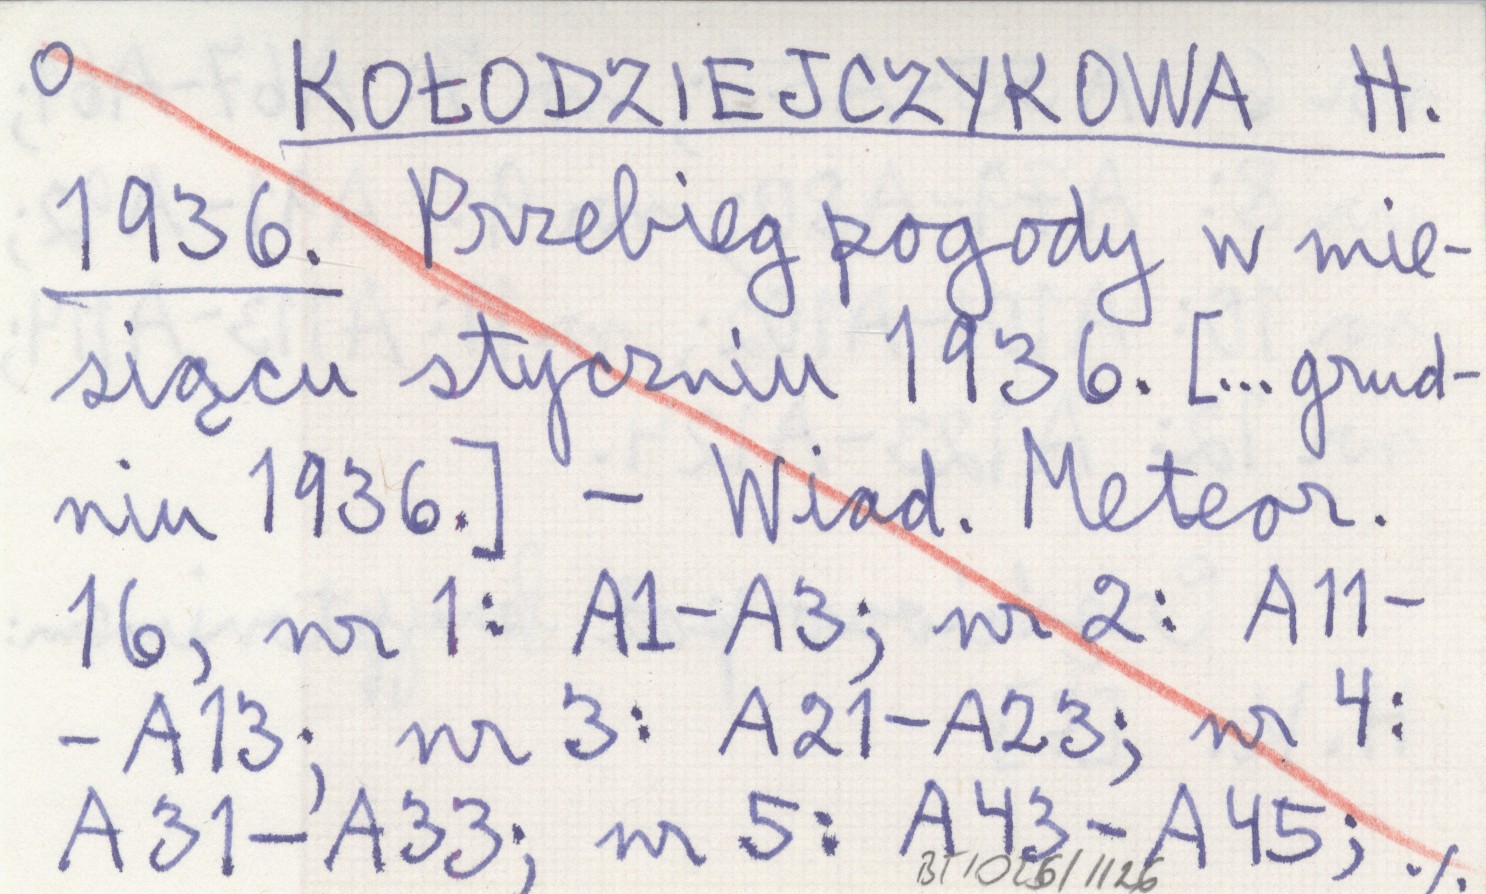 O KOŁODZIEJCZYKOWA H.
1936. Przebieg pogody w mie-
siącu styczniu 1936. [...grud-
niu 1936.] - Wiad. Meteor.
16, nr 1: A1-A3; nr 2: A11-
-A13; nr 3: A21-A23; nr 4:
A31-A33; nr 5: A43-A45; ./.